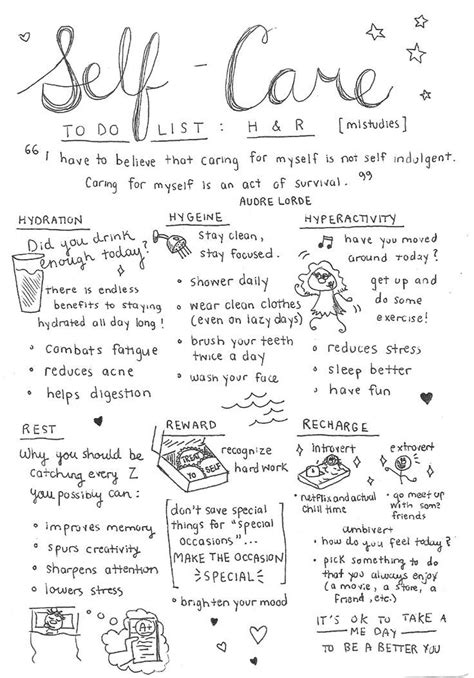 Self-Care
TO DO LIST: H & R [mlstudies]
“I have to believe that caring for myself is not self indulgent.
Caring for myself is an act of survival.”
AUDRE LORDE
HYDRATION
Did you drink
enough today?
There is endless
benefits to staying
hydrated all day long!
• combats fatigue
• reduces acne
• helps digestion
HYGEINE
stay clean,
stay focused.
• shower daily
• wear clean clothes
(even on lazy days)
• brush your teeth
twice a day
• wash your face
HYPERACTIVITY
have you moved
around today?
get up and
do some
exercise!
• reduces stress
• sleep better
• have fun
REST
Why you should be
catching every Z
you possibly can:
• improves memory
• spurs creativity
• sharpens attention
• lowers stress
A+
REWARD
TREAT
YO SELF
recognize
hard work
[don't save special
things for "special
occasions"...
MAKE THE OCCASION
SPECIAL]
• brighten your mood
RECHARGE
introvert
• netflix and actual
chill time
extrovert
• go meet up
with some
friends
ambivert
• how do you feel today?
• pick something to do
that you always enjoy
(a movie, a store, a
friend, etc.)
IT'S OK TO TAKE A
ME DAY
TO BE A BETTER YOU